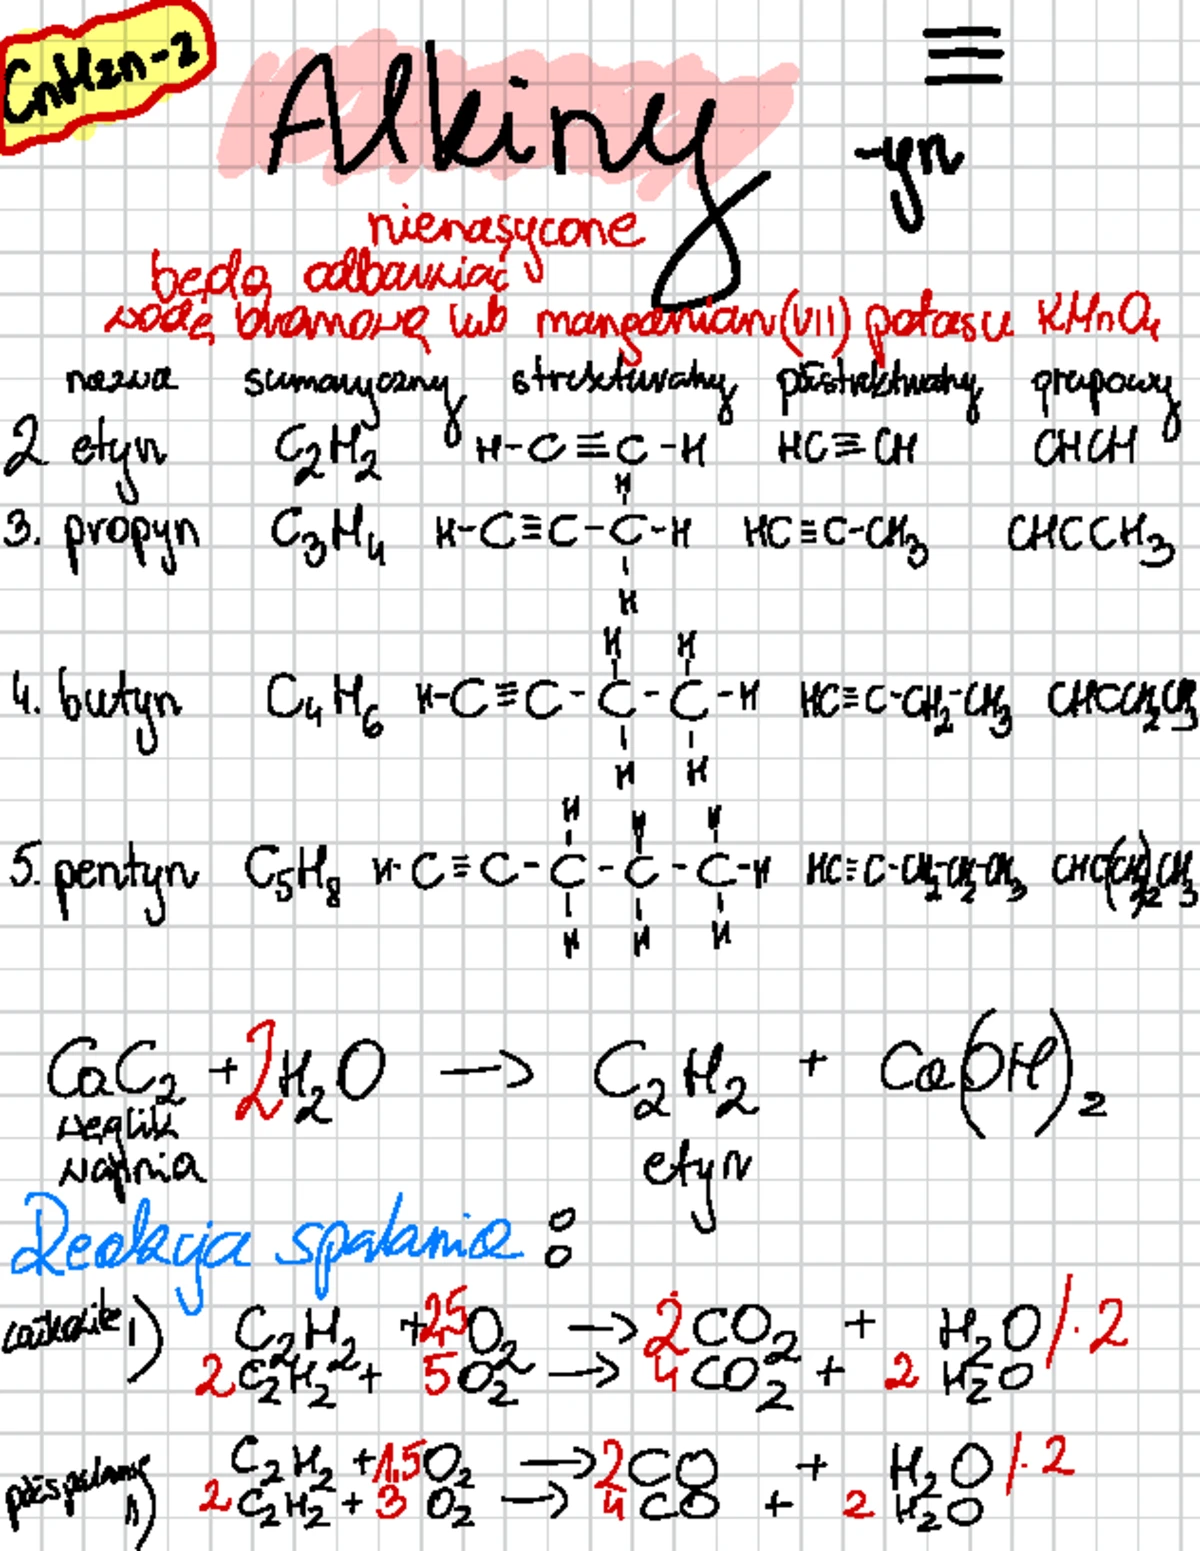 CnH2n-2
Alkiny
≡
-yn
nienasycone
będą odbarwiać
wodę bromową lub manganian(VII) potasu KMnO4
nazwa sumaryczny strukturalny półstrukturalny grupowy
2 etyn C2H2 H-C≡C-H HC≡CH CHCH
H
3. propyn C3H4 H-C≡C-C-H HC≡C-CH3 CHCCH3
H
H H
4. butyn C4H6 H-C≡C-C-C-H HC≡C-CH2-CH3 CHCCH2CH3
H H
H H H
5. pentyn C5H8 H-C≡C-C-C-C-H HC≡C-CH2-CH2-CH3 CHC(CH2)2CH3
H H H
CaC2 + 2H2O → C2H2 + Ca(OH)2
węglik
wapnia
etyn
Reakcja spalania:
całkowite 1) C2H2 + 2,5O2 → 2CO2 + H2O /·2
2C2H2 + 5O2 → 4CO2 + 2H2O
półspalanie 1) C2H2 + 1,5O2 → 2CO + H2O /·2
2C2H2 + 3O2 → 4CO + 2H2O